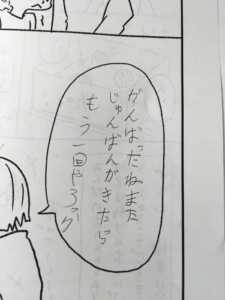 がんばったねまた
じゅんばんがきたら
もう一回やろっか